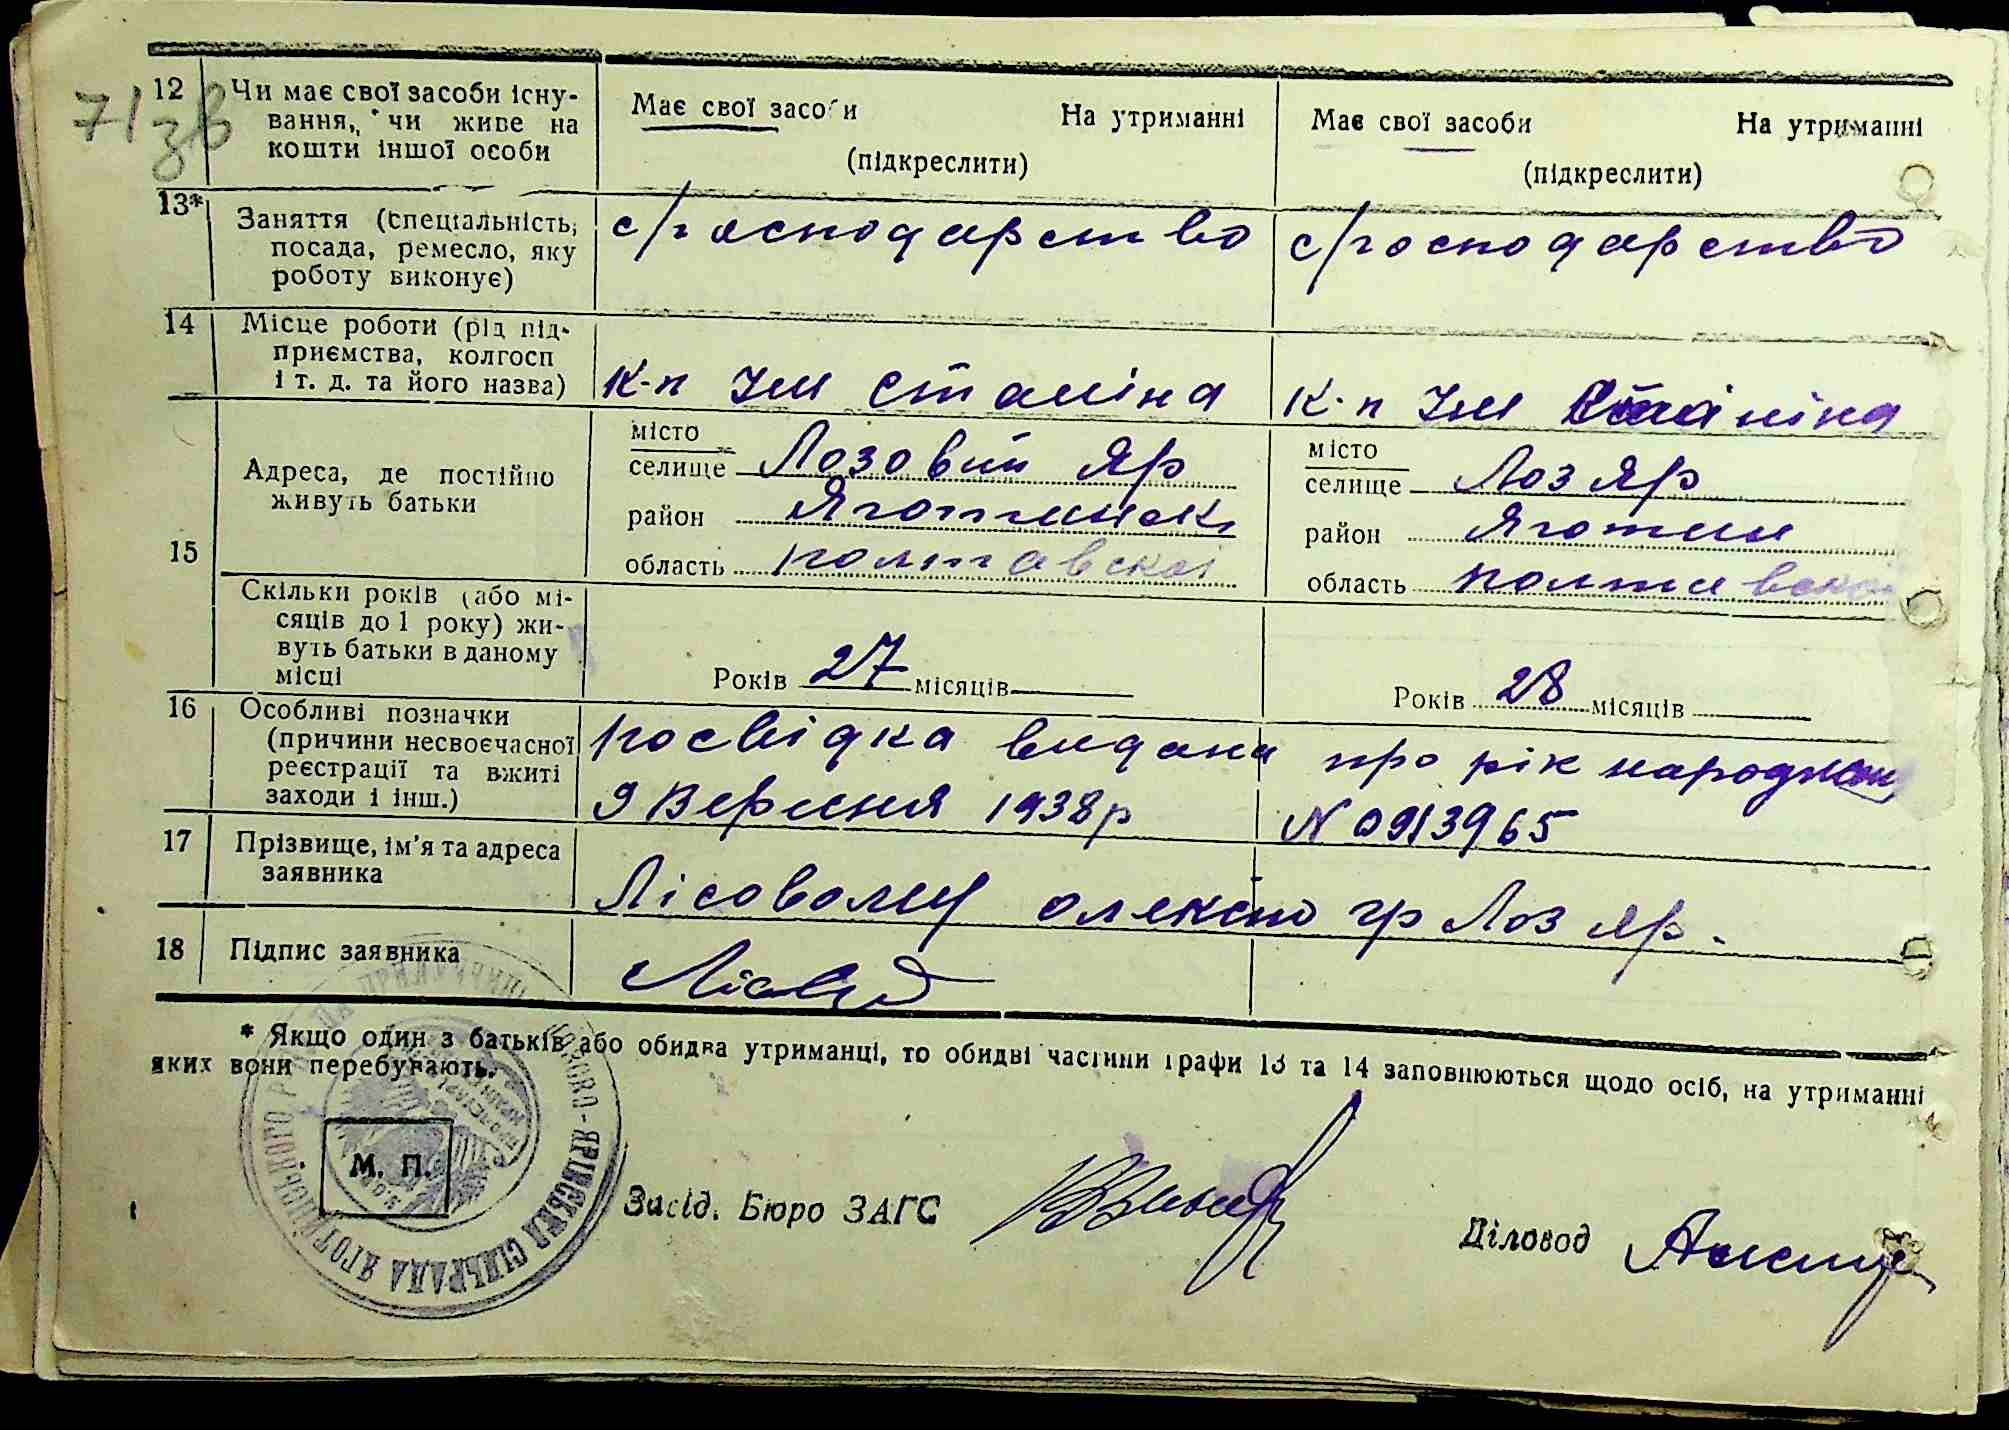 71 зв
12 Чи має свої засоби існу-
вання, чи живе на
кошти іншої особи
Має свої засоби На утриманні
(підкреслити)
Має свої засоби На утриманні
(підкреслити)
13* Заняття (спеціальність,
посада, ремесло, яку
роботу виконує)
с/господарство
с/господарство
14 Місце роботи (рід під-
приємства, колгосп
і т. д. та його назва)
К-п Ім Сталіна
К-п Ім Сталіна
15
Адреса, де постійно
живуть батьки
місто
селище Лозовий Яр
район Яготинськ
область полтавскої
місто
селище Лоз Яр
район Яготин
область полтавской
Скільки років (або мі-
сяців до 1 року) жи-
вуть батьки в даному
місці
Років 27 місяців
Років 28 місяців
16 Особливі позначки
(причини несвоєчасної
реєстрації та вжиті
заходи і інш.)
посвідка видана про рік народжен
9 Вересня 1938 р N 0913965
17 Прізвище, ім'я та адреса
заявника
Лісоволец олексій гр Лоз Яр.
18 Підпис заявника
* Якщо один з батьків або обидва утриманці, то обидві частини графи 13 та 14 заповнюються щодо осіб, на утриманні
яких вони перебувають.
М. П.
ЯРІВСЬКА СІЛЬРАДА ЯГОТИНСЬКОГО
Засід. Бюро ЗАГС
Діловод